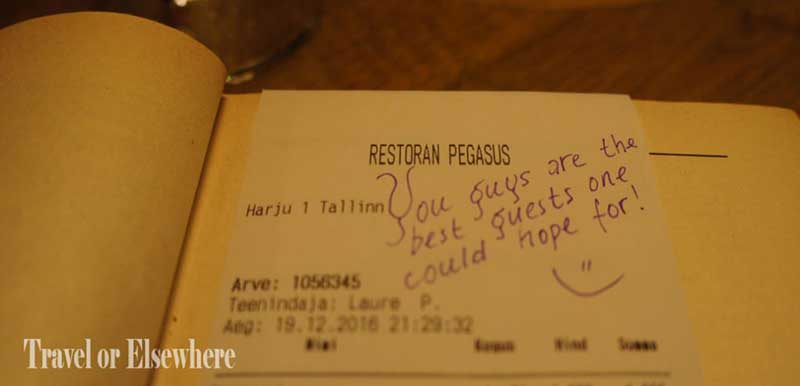 RESTORAN PEGASUS
Harju 1 Tallinn
You guys are the
best guests one
could hope for!
Arve: 1056345
Teenindaja: Laure P.
Aeg: 19.12.2016 21:29:32
Nimi Kogus Hind Summa
Travel or Elsewhere